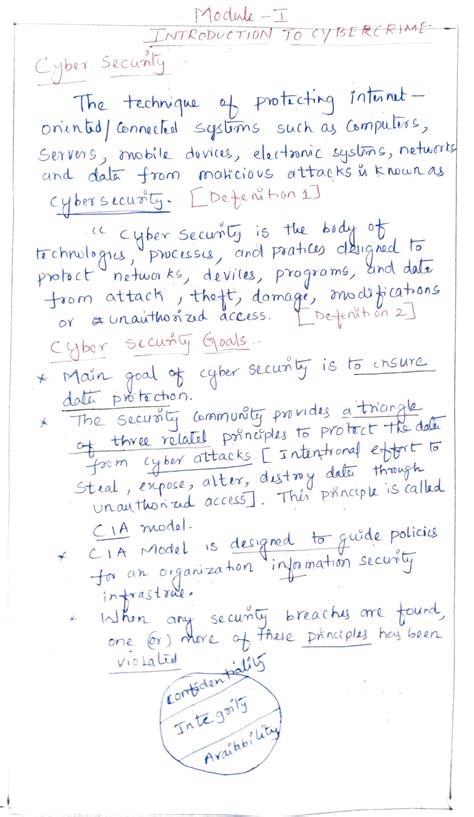 Module - I
INTRODUCTION TO CYBERCRIME.
Cyber Security
The technique of protecting internet-
oriented/connected systems such as computers,
servers, mobile devices, electronic systems, networks
and data from malicious attacks is known as
cybersecurity. [Defenition 1]
" Cyber Security is the body of
technologies, processes, and pratices designed to
protect networks, devices, programs, and data
from attack, theft, damage, modifications
or unauthorized access. [Defenition 2]
Cyber Security Goals..
* Main goal of cyber security is to ensure
data protection.
* The security community provides a triangle
of three related principles to protect the data
from cyber attacks [Intentional effort to
Steal, expose, alter, destroy data through
unauthorized access]. This principle is called
CIA model.
* CIA Model is designed to guide policies
for an organization information security
infrastrue.
* When any security breaches are found,
one (or) more of these principles has been
violated
Confidentiality
Integrity
Availability